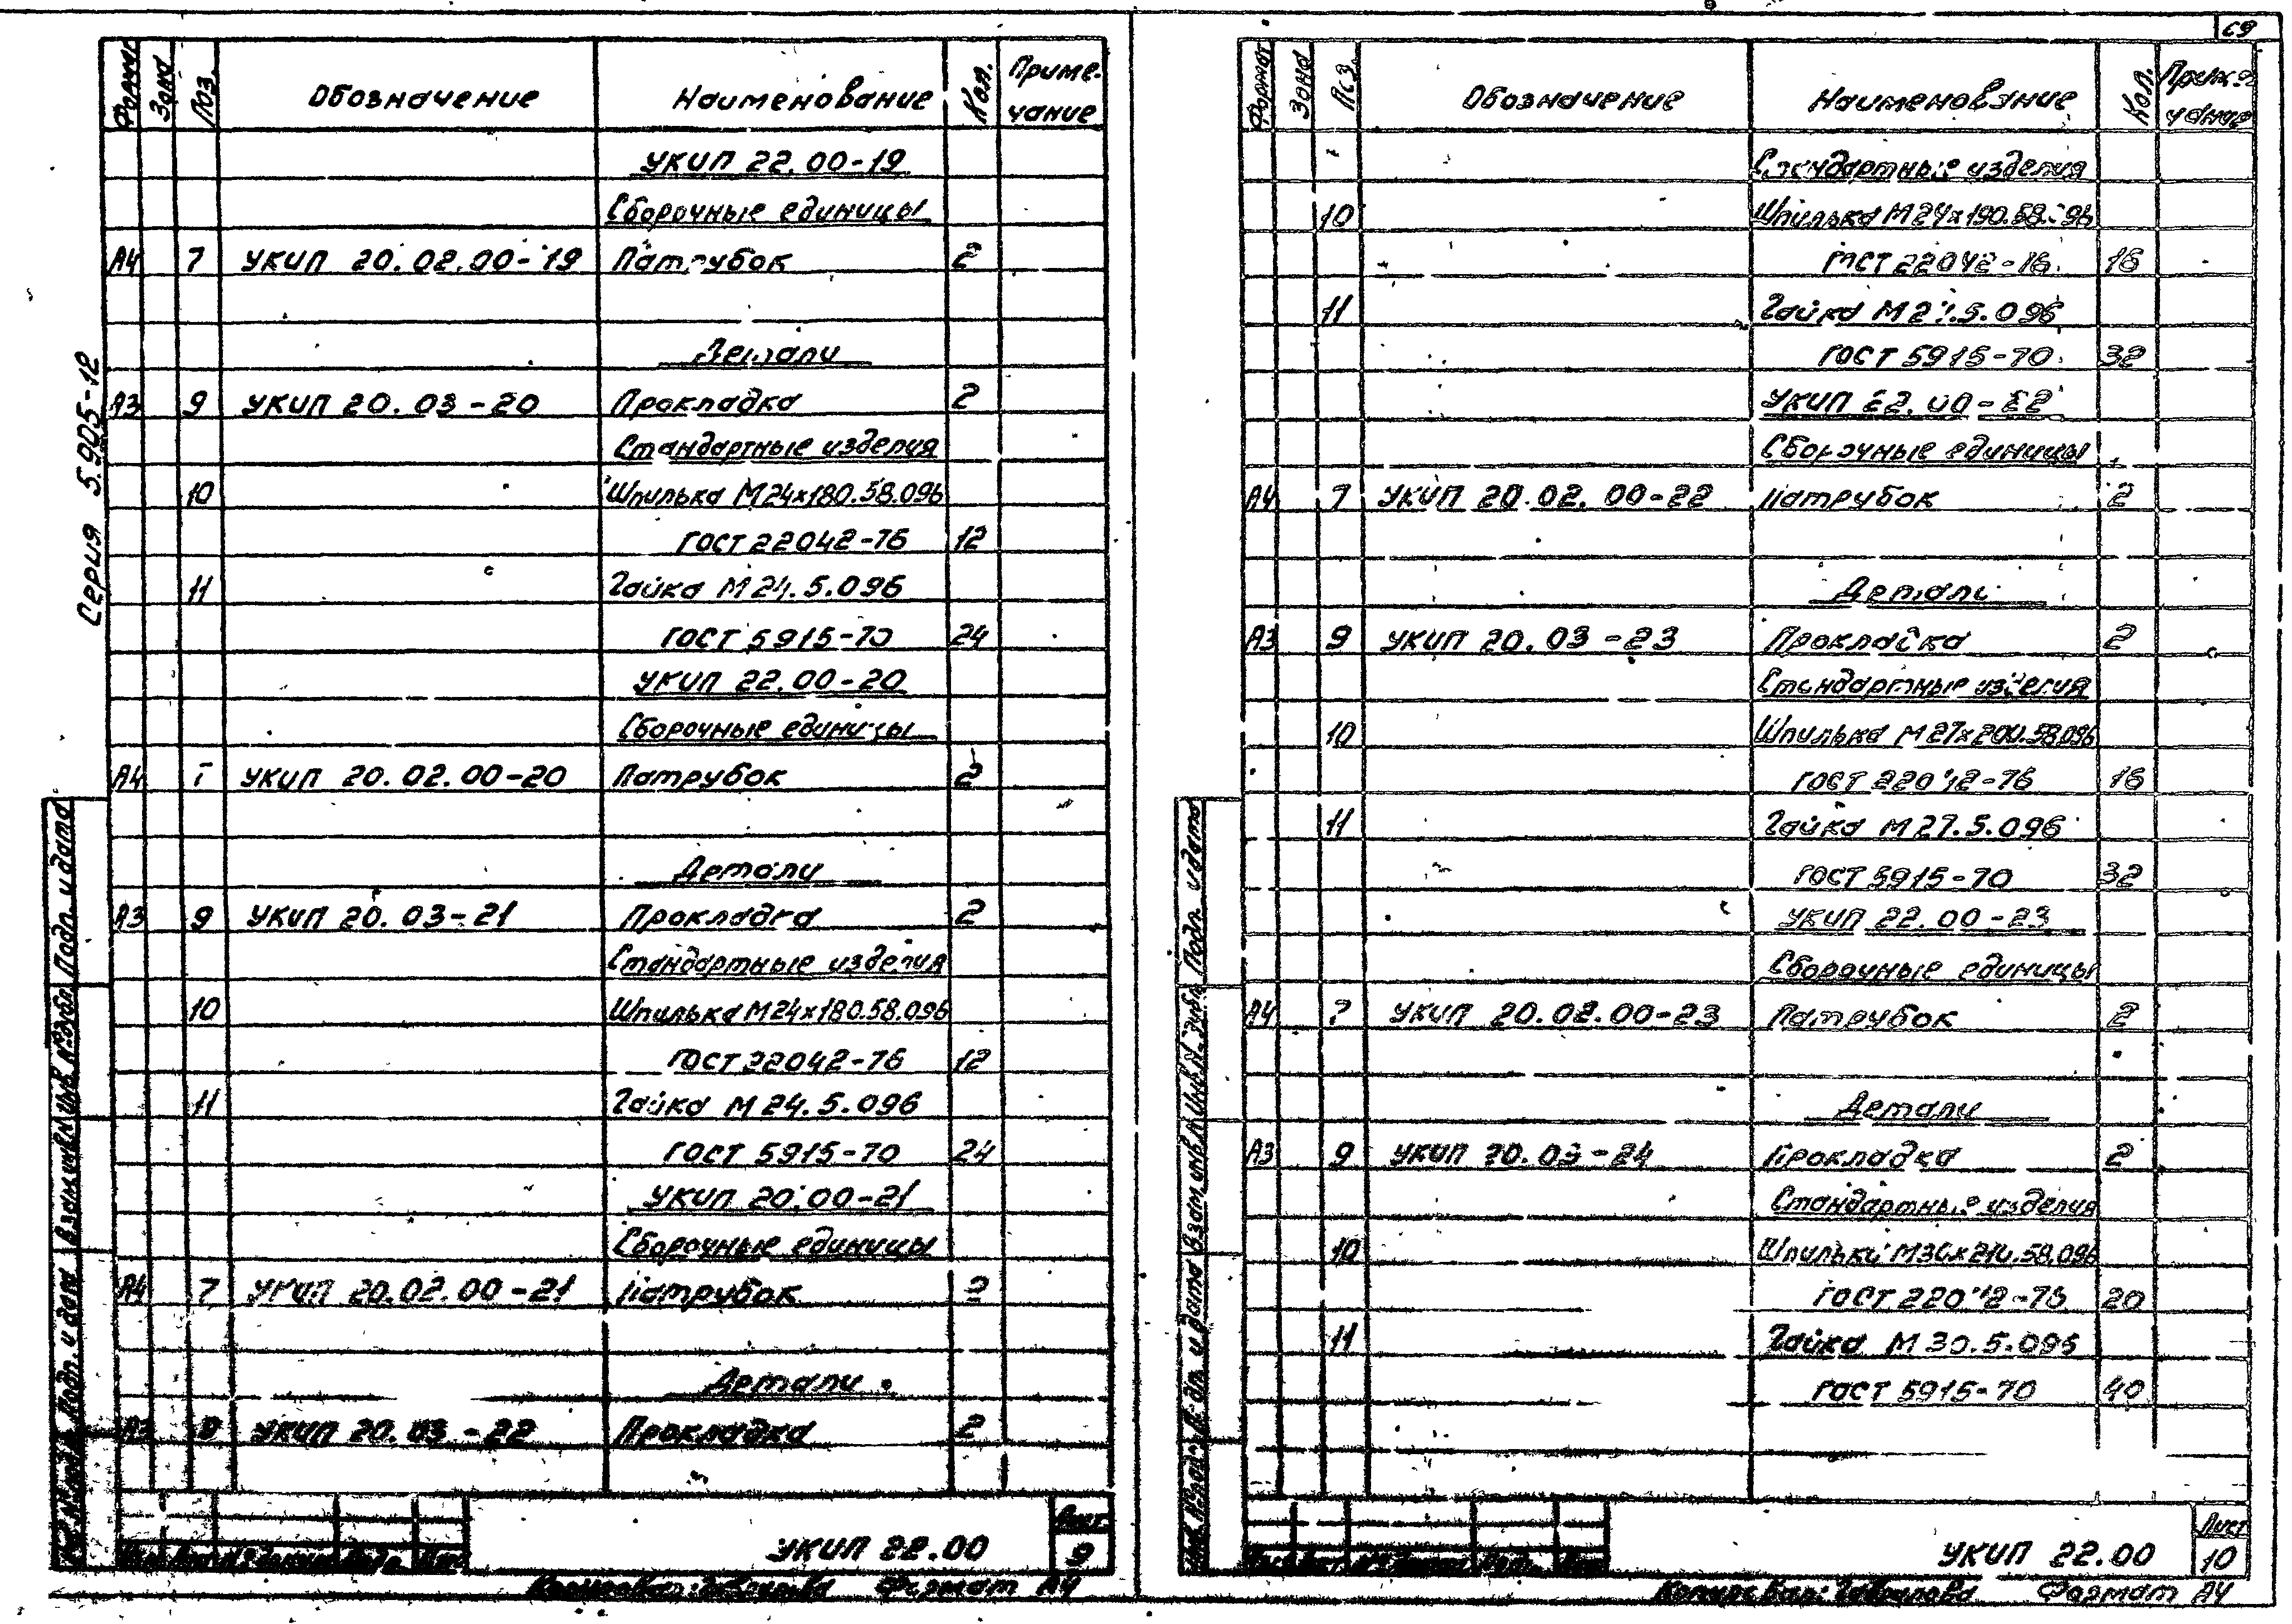 с9
Серия 5.905-12
Формат Зона Поз. Обозначение Наименование Кол. Приме-
чание
УКИП 22.00-19
Сборочные единицы
А4 7 УКИП 20.02.00-19 Патрубок 2
Детали
А3 9 УКИП 20.03-20 Прокладка 2
Стандартные изделия
10 Шпилька М24х180.58.096
ГОСТ 22042-76 12
11 Гайка М24.5.096
ГОСТ 5915-70 24
УКИП 22.00-20
Сборочные единицы
А4 7 УКИП 20.02.00-20 Патрубок 2
Детали
А3 9 УКИП 20.03-21 Прокладка 2
Стандартные изделия
10 Шпилька М24х180.58.096
ГОСТ 22042-76 12
11 Гайка М24.5.096
ГОСТ 5915-70 24
УКИП 20.00-21
Сборочные единицы
А4 7 УКИП 20.02.00-21 Патрубок 2
Детали
А3 УКИП 20.03-22 Прокладка 2
Подп. и дата
Инв.№дубл.
Взам.инв.№
Подп. и дата
УКИП 22.00
Лист
9
Формат А4
Формат Зона Поз. Обозначение Наименование Кол. Приме-
чание
Стандартные изделия
10 Шпилька М24х190.58.096
ГОСТ 22042-76 16
11 Гайка М24.5.096
ГОСТ 5915-70 32
УКИП 22.00-22
Сборочные единицы
А4 7 УКИП 20.02.00-22 Патрубок 2
Детали
А3 9 УКИП 20.03-23 Прокладка 2
Стандартные изделия
10 Шпилька М27х200.58.096
ГОСТ 22042-76 16
11 Гайка М27.5.096
ГОСТ 5915-70 32
УКИП 22.00-23
Сборочные единицы
А4 7 УКИП 20.02.00-23 Патрубок 2
Детали
А3 9 УКИП 20.03-24 Прокладка 2
Стандартные изделия
10 Шпилька М30х210.58.096
ГОСТ 22042-76 20
11 Гайка М30.5.096
ГОСТ 5915-70 40
Подп. и дата
Инв.№дубл.
Взам.инв.№
Подп. и дата
УКИП 22.00
Лист
10
Копировал: Гаврилова Формат А4